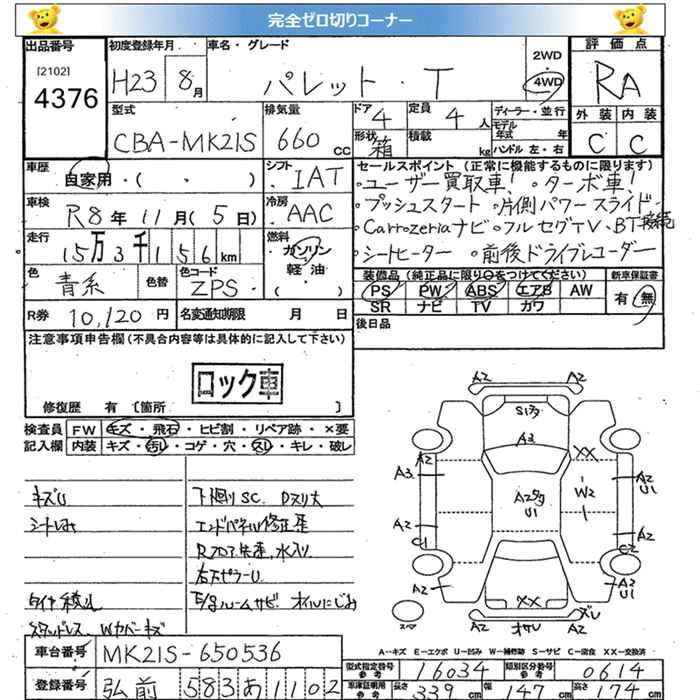 完全ゼロ切りコーナー
出品番号 初度登録年月 車名・グレード 2WD 評価点
[2102] 4376 H23 8月 パレット・T 4WD RA
型式 排気量 ドア 4 定員 4人 ディーラー・並行 外装 内装
CBA-MK21S 660cc 形状 箱 積載 kg モデル年式 年 C C
ハンドル 左・右
車歴 シフト セールスポイント(正常に機能するものに限ります)
自家用・( ・ ) IAT ・ユーザー買取車! ・ターボ車!
車検 冷房 ・プッシュスタート ・片側パワースライド
R8年11月(5日) AAC ・Carrozeriaナビ・フルセグTV、BT接続
走行 燃料 ・シートヒーター ・前後ドライブレコーダー
15万3千156km ガソリン・軽油( )
色 色替 色コード 装備品(純正品に限り○をつけてください) 新車保証書
青系 ZPS PS PW ABS エアB AW 有・無
SR ナビ TV カワ
R券 10,120円 名変通知期限 月 日 後日品
注意事項申告欄(不具合内容等は具体的に記入して下さい)
ロック車
修復歴 有〔箇所 〕
検査員 FW キズ・飛石・ヒビ割・リペア跡・×要
記入欄 内装 キズ・汚レ・コゲ・穴・スレ・キレ・破レ
キズU 下廻りSC、Dスリ大
シートしみ エンドパネル修正歪
水入り
E/Gルームサビ オイルにじみ
スタッドレス Wカバーキズ
A2 A2
S1多
A3
A2 XX
A3 A2多 U1 W2 A2 U1
A2 C1 A2 C2
A2 A2 U1
XX
スマ オサレ ズレ
A2
A…キズ E…エクボ U…凹み W…補修跡 S…サビ C…腐食 XX…交換済
車台番号 MK21S-650536 型式指定番号 参考 16034 類別区分番号 参考 0614
登録番号 弘前 583 あ 1102 車庫証明用 参考 長さ 339cm 幅 147cm 高さ 174cm